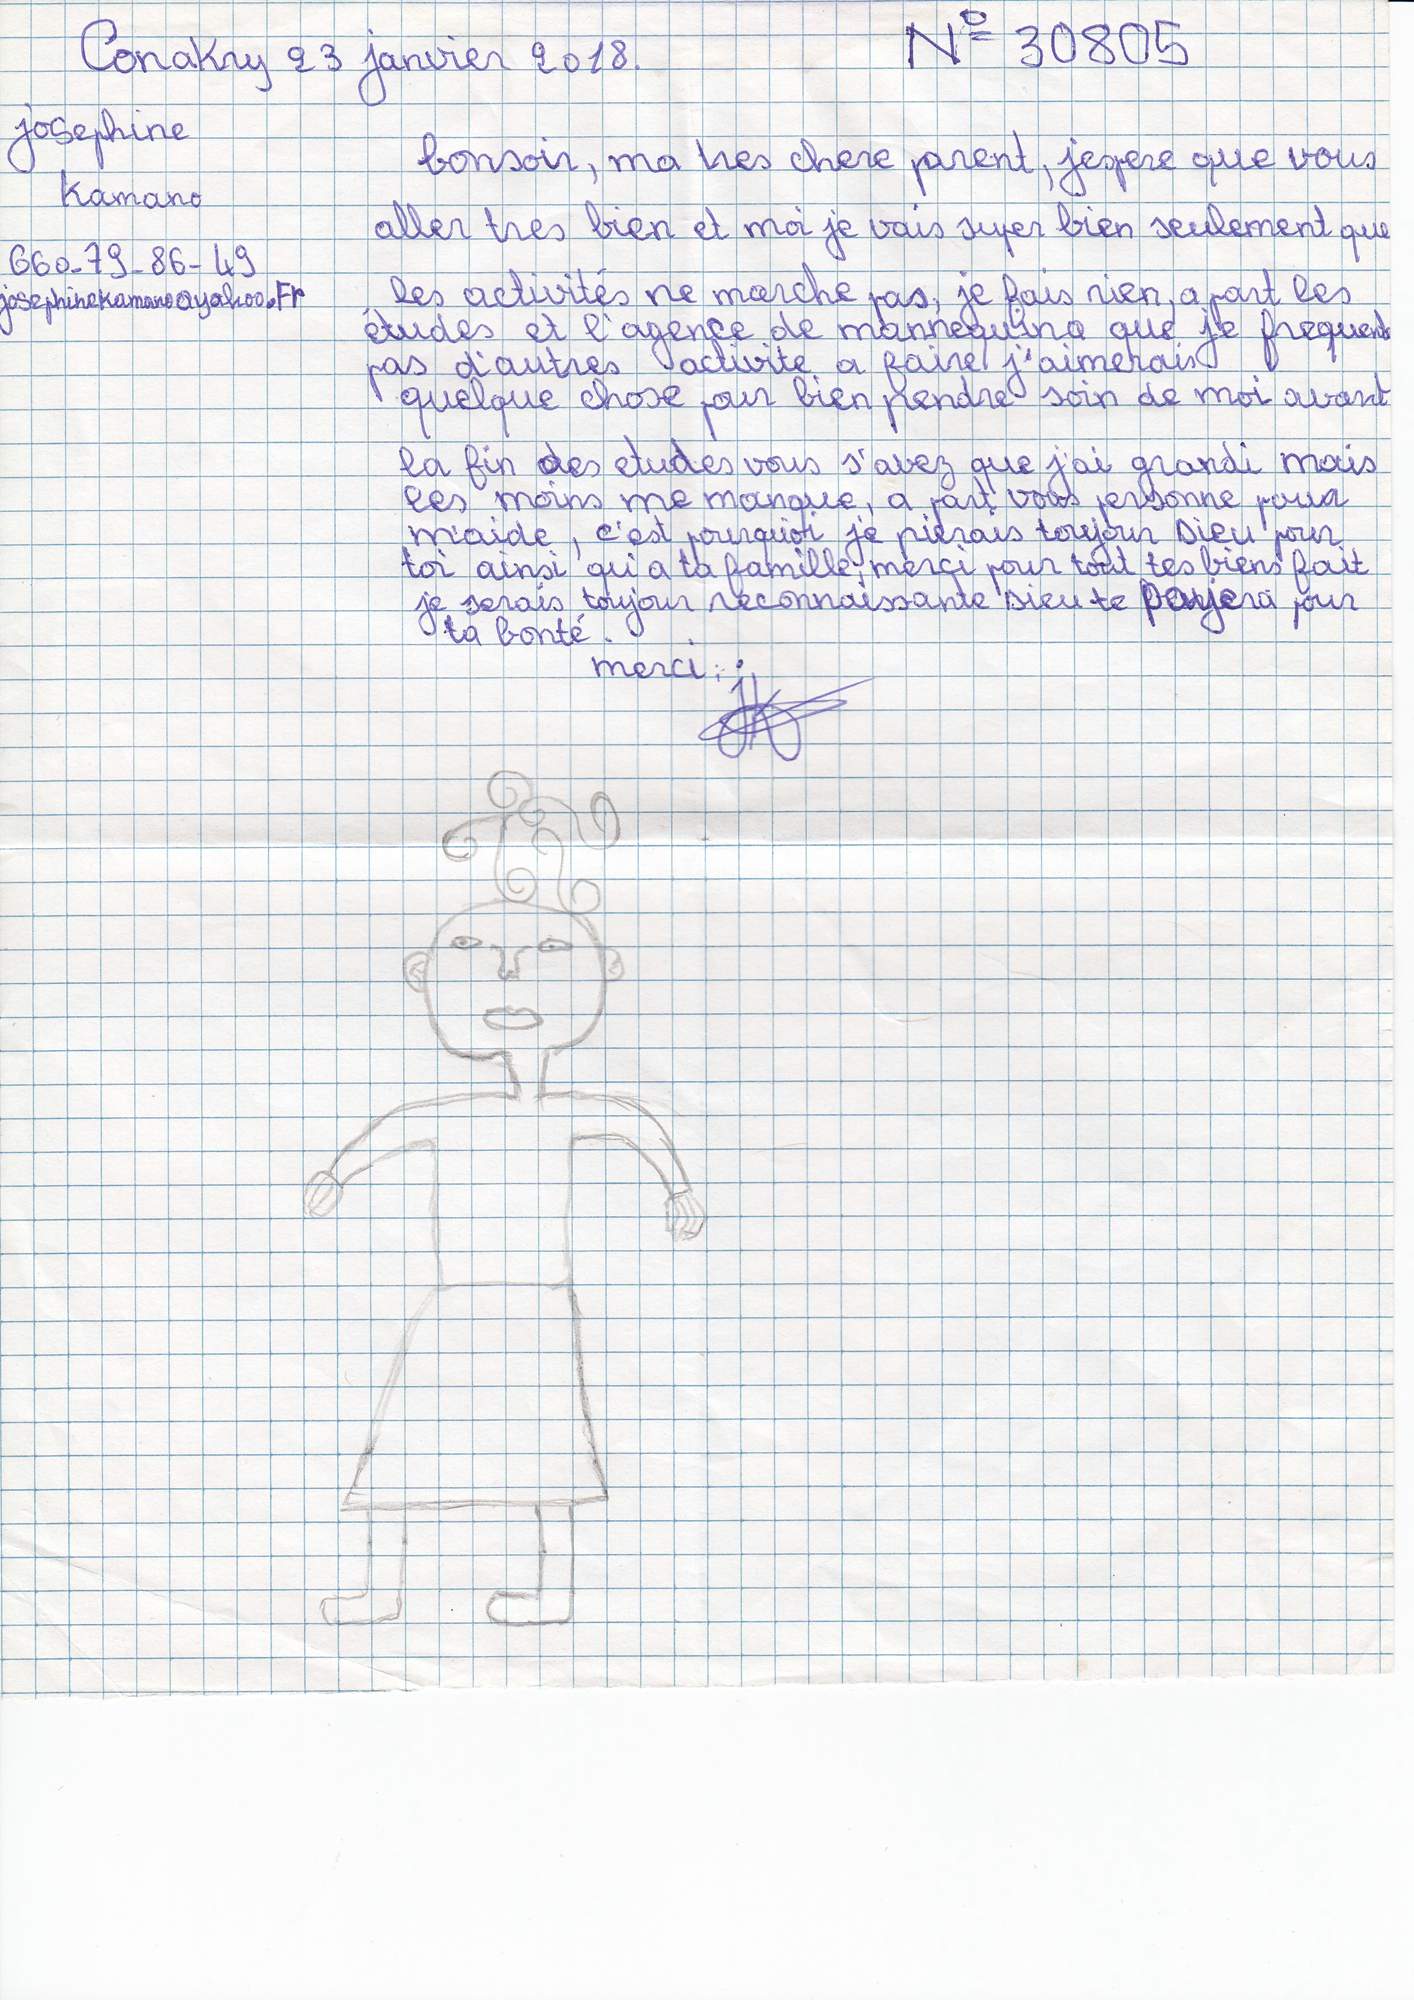 Conakry 23 janvier 2018.
N° 30805
josephine
Kamano
660-79-86-49
josephinekamano@yahoo.Fr
bonsoir, ma tres chere parent, jespere que vous
aller tres bien et moi je vais super bien seulement que
les activités ne marche pas, je fais rien, a part les
études et l'agence de mannequina que je frequente
pas d'autres activite a faire j'aimerais
quelque chose pour bien prendre soin de moi avant
la fin des etudes vous s'avez que j'ai grandi mais
les moins me manque, a part vous personne pour
m'aide, c'est pourquoi je pierais toujour Dieu pour
toi ainsi qu'a ta famille, merci pour tout tes biens fait
je serais toujour reconnaissante Dieu te payera pour
ta bonté.
merci.